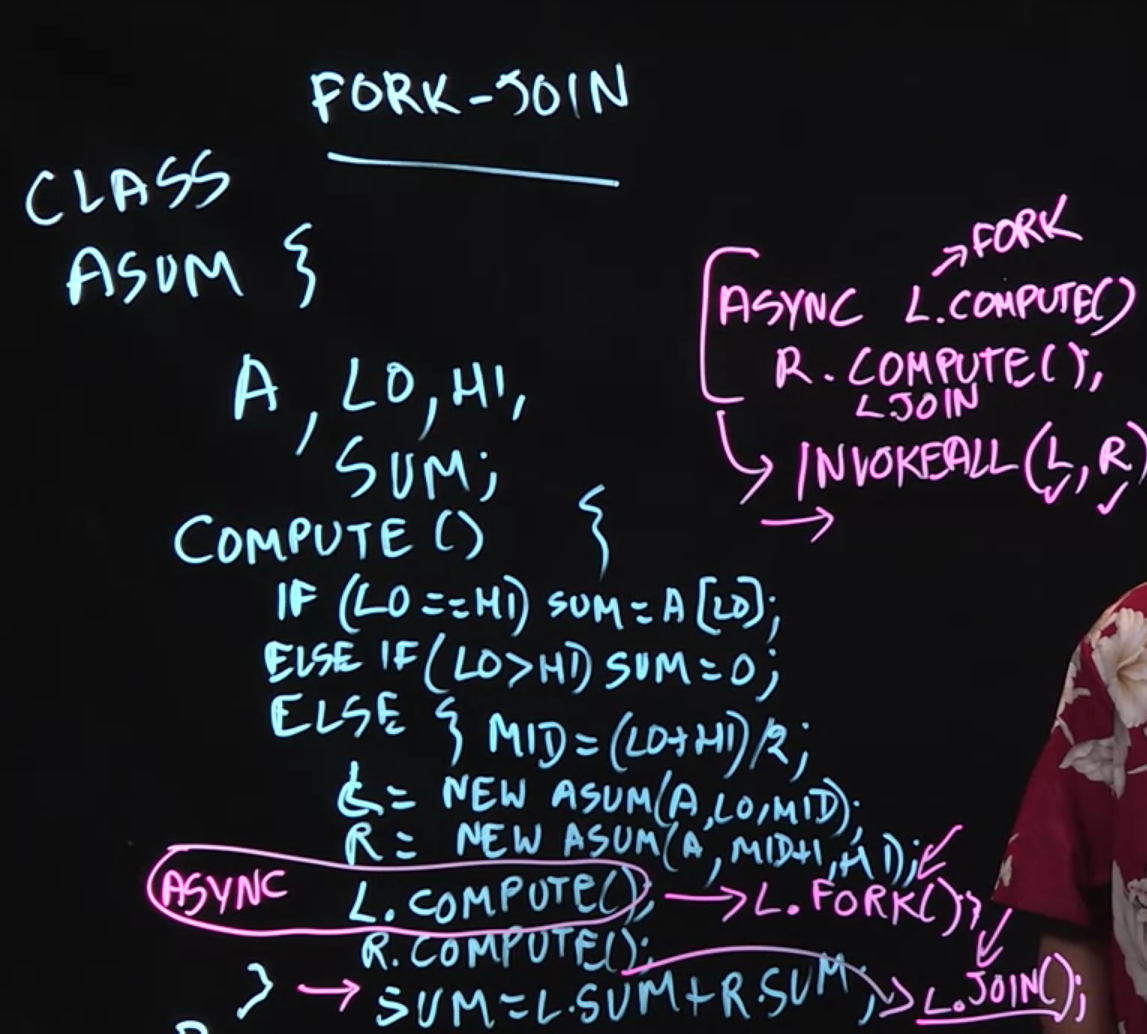 FORK-JOIN
CLASS
ASUM {
A, LO, HI,
SUM;
COMPUTE() {
IF (LO==HI) SUM=A[LO];
ELSE IF(LO>HI) SUM=0;
ELSE { MID=(LO+HI)/2;
L= NEW ASUM(A,LO,MID);
R= NEW ASUM(A,MID+1,HI);
ASYNC L.COMPUTE(); → L.FORK();
R.COMPUTE();
} → SUM=L.SUM+R.SUM; L.JOIN();
→FORK
ASYNC L.COMPUTE()
R.COMPUTE();
L.JOIN
→ INVOKEALL(L,R)
→